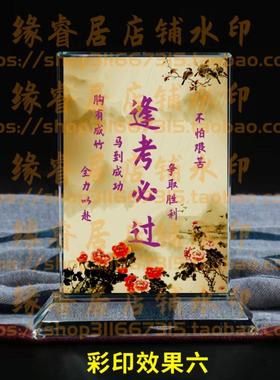 缘睿居店铺水印
https://shop311667315.taobao.com
不怕艰苦
争取胜利
逢考必过
马到成功
胸有成竹
全力以赴
缘睿居店铺水印
https://shop311667315.taobao.com
彩印效果六